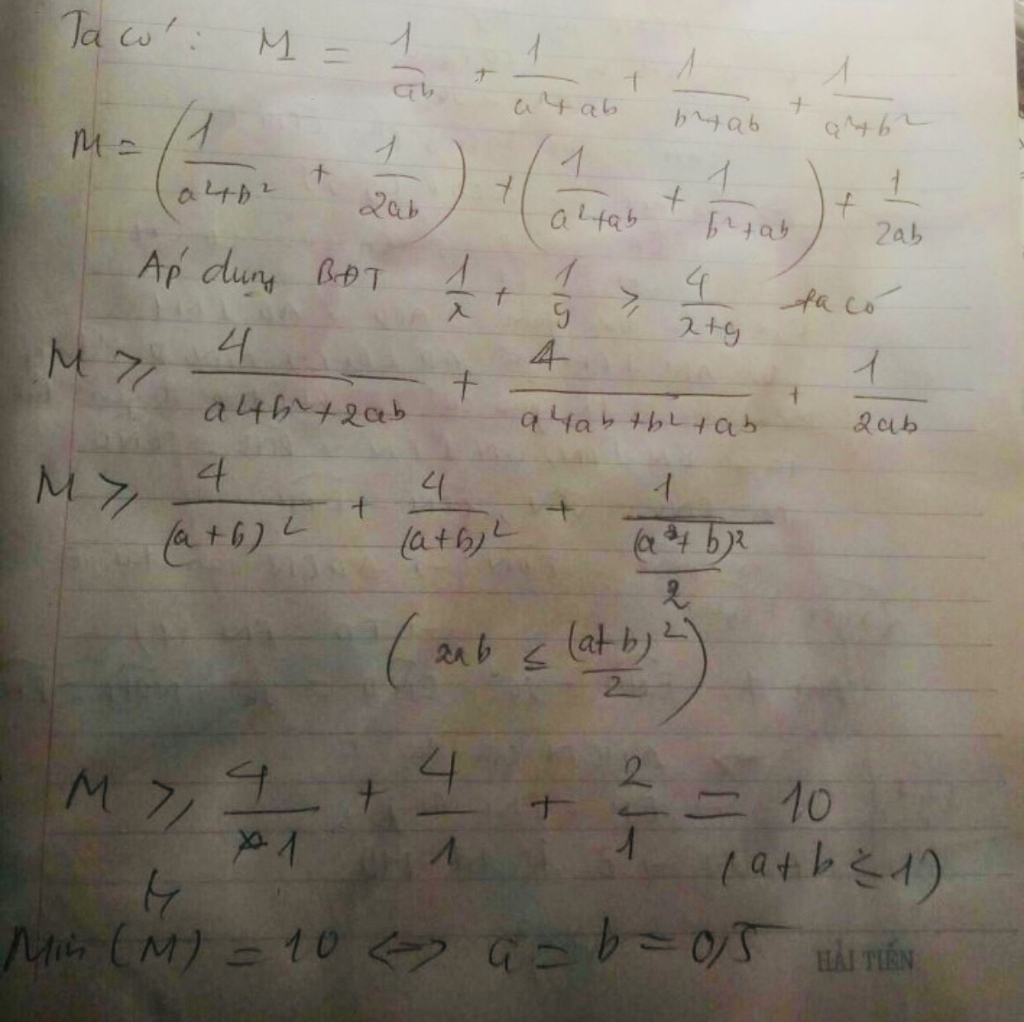 Ta có: M = 1/ab + 1/(a²+ab) + 1/(b²+ab) + 1/(a²+b²)
M = (1/(a²+b²) + 1/2ab) + (1/(a²+ab) + 1/(b²+ab)) + 1/2ab
Áp dụng BĐT 1/x + 1/y ≥ 4/(x+y) ta có
M ≥ 4/(a²+b²+2ab) + 4/(a²+ab+b²+ab) + 1/2ab
M ≥ 4/(a+b)² + 4/(a+b)² + 1/((a+b)²/2)
(2ab ≤ (a+b)²/2)
M ≥ 4/1 + 4/1 + 2/1 = 10
(a+b ≤ 1)
Min (M) = 10 <=> a = b = 0,5
HẢI TIẾN